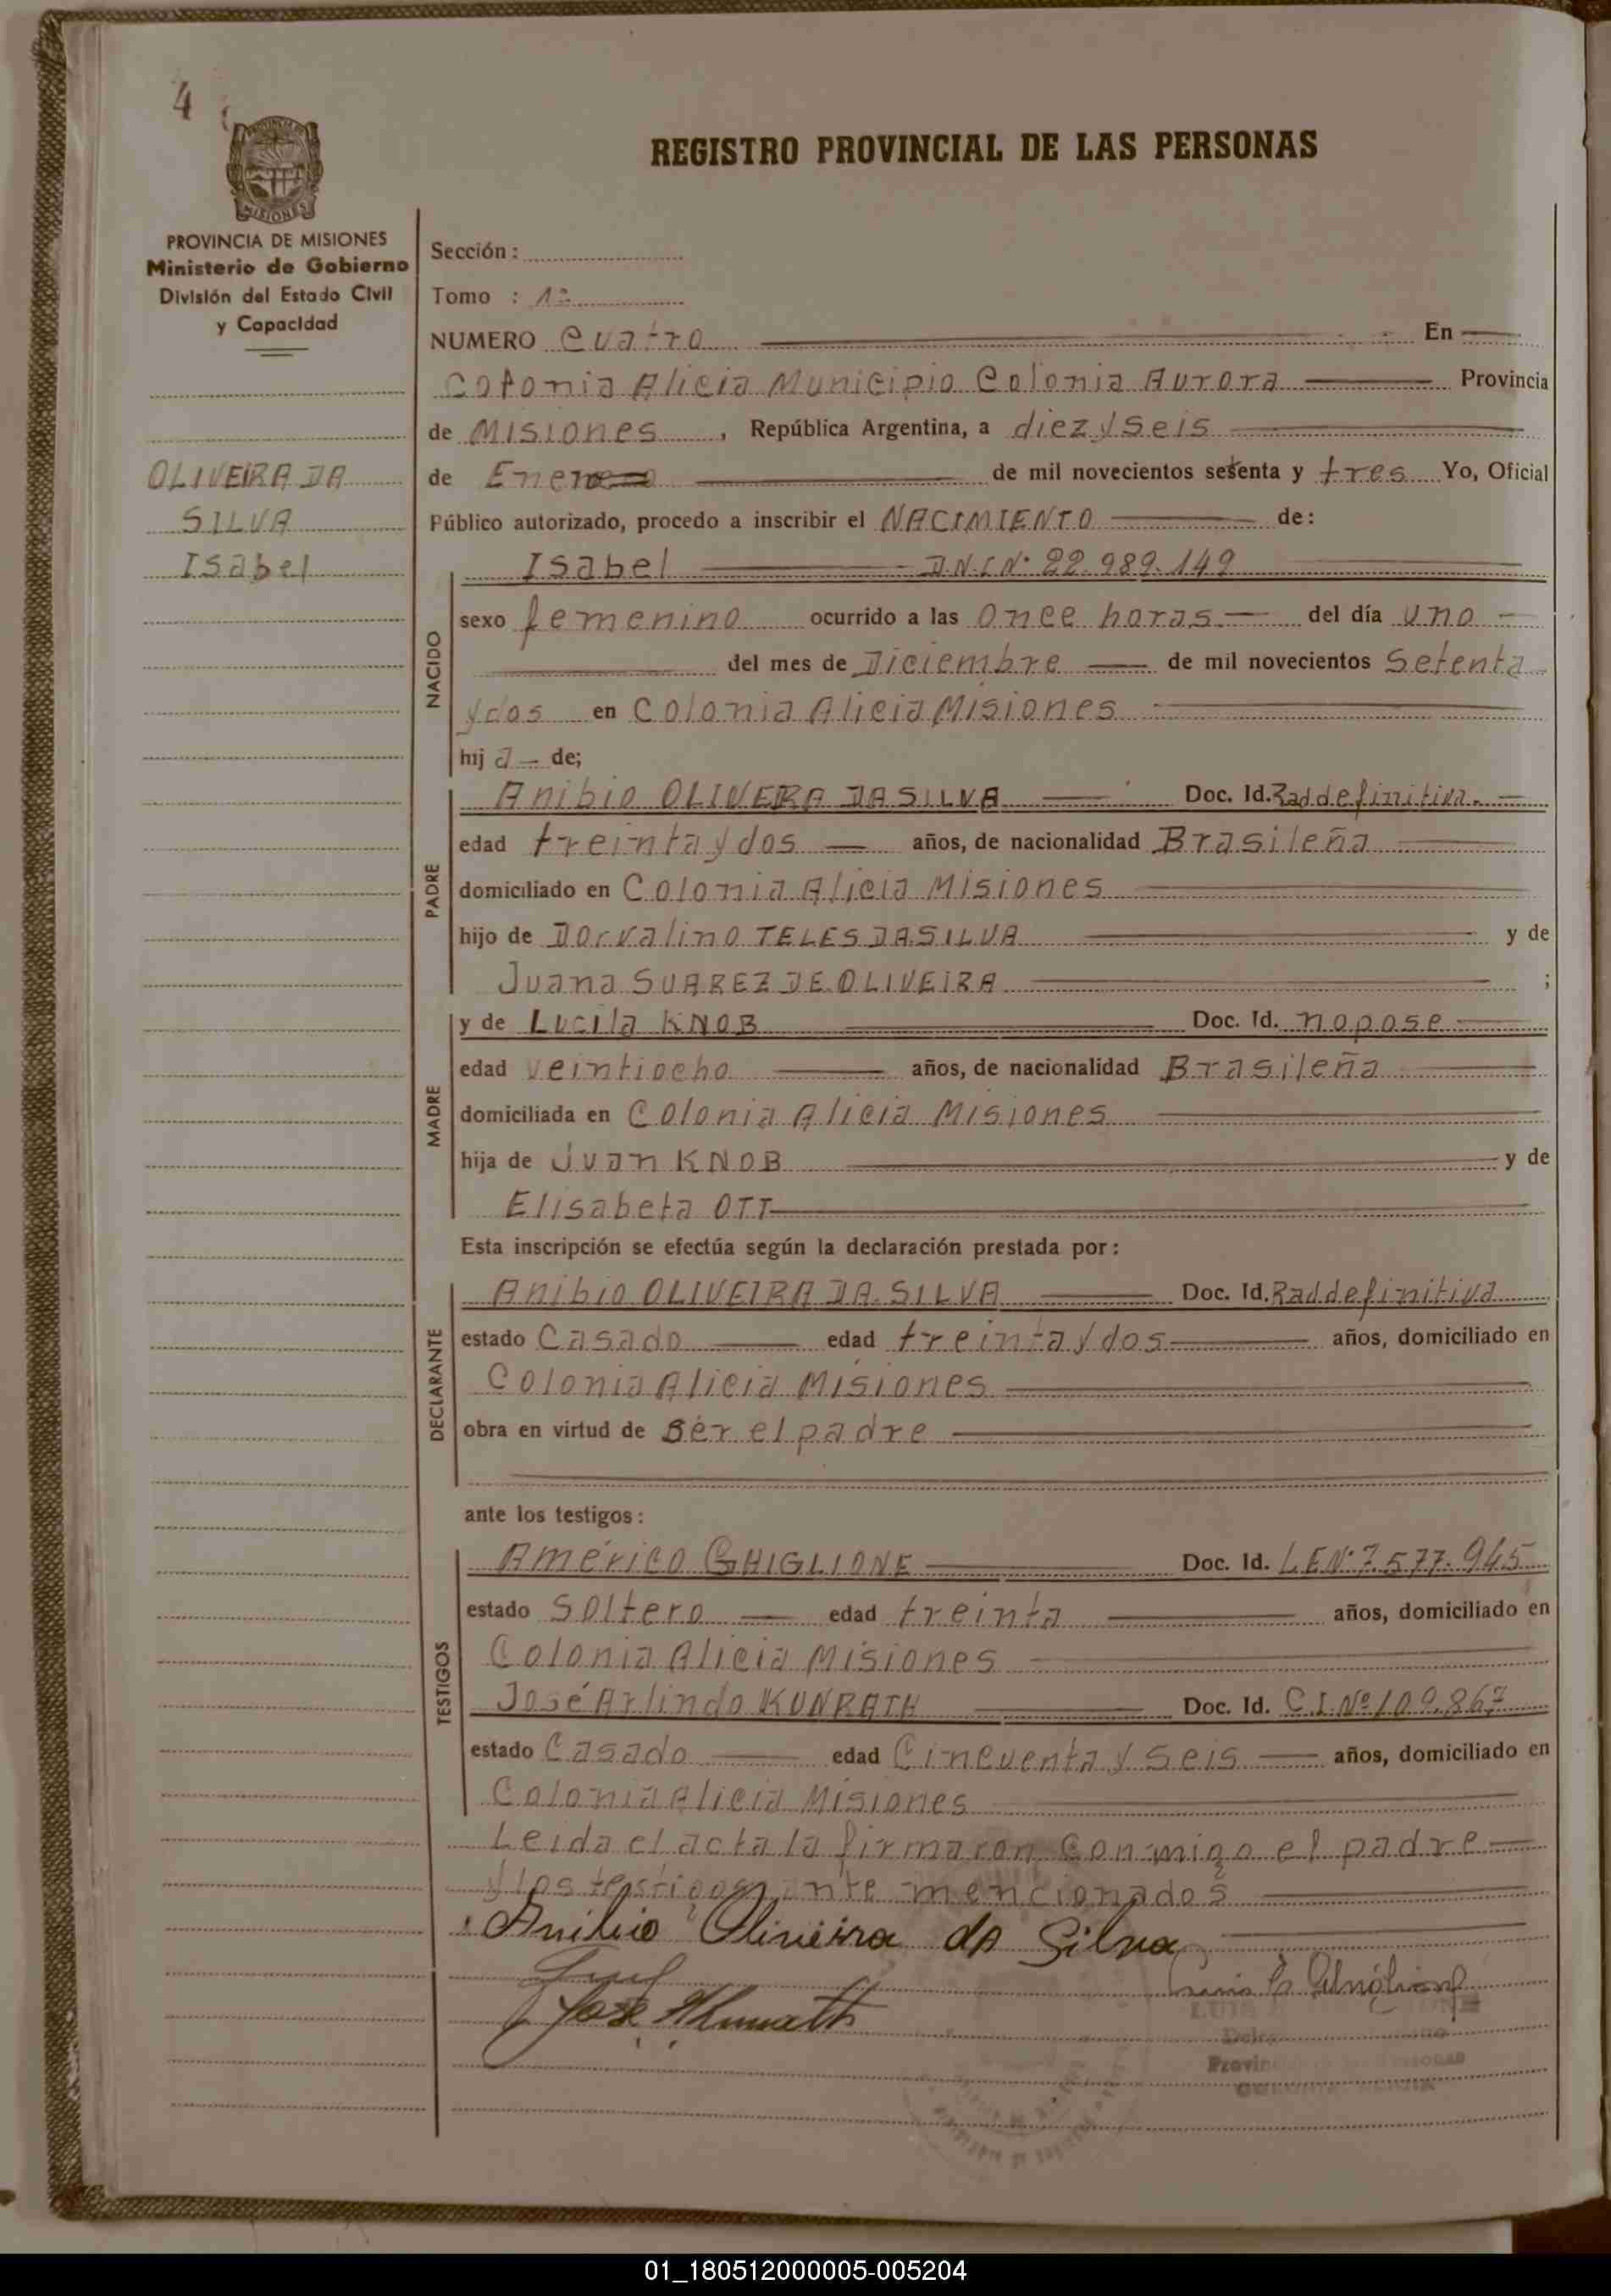 4
MISIONES
PROVINCIA DE MISIONES
Ministerio de Gobierno
División del Estado Civil
y Capacidad
OLIVEIRA DA
SILVA
Isabel
REGISTRO PROVINCIAL DE LAS PERSONAS
Sección :
Tomo : 1º
NUMERO Cuatro En
Colonia Alicia Municipio Colonia Aurora Provincia
de Misiones , República Argentina, a diez y seis
de Enero de mil novecientos setenta y tres Yo, Oficial
Público autorizado, procedo a inscribir el NACIMIENTO de:
Isabel D.N.I.Nº 22.989.149
NACIDO
sexo femenino ocurrido a las Once horas del día uno
del mes de Diciembre de mil novecientos Setenta
y dos en Colonia Alicia Misiones
hij a de;
PADRE
Anibio OLIVEIRA DA SILVA Doc. Id. Rad definitiva.
edad treinta y dos años, de nacionalidad Brasileña
domiciliado en Colonia Alicia Misiones
hijo de Dorvalino TELES DA SILVA y de
Juana SUAREZ DE OLIVEIRA ;
MADRE
y de Lucila KNOB Doc. Id. no pose
edad veintiocho años, de nacionalidad Brasileña
domiciliada en Colonia Alicia Misiones
hija de Juan KNOB y de
Elisabeta OTT
Esta inscripción se efectúa según la declaración prestada por :
DECLARANTE
Anibio OLIVEIRA DA SILVA Doc. Id. Rad definitiva
estado Casado edad treinta y dos años, domiciliado en
Colonia Alicia Misiones
obra en virtud de Sér el padre
ante los testigos :
TESTIGOS
Américo GHIGLIONE Doc. Id. L.E.Nº 7.577.945
estado Soltero edad treinta años, domiciliado en
Colonia Alicia Misiones
José Arlindo KUNRATH Doc. Id. C.I.Nº 109.867
estado Casado edad Cincuenta y Seis años, domiciliado en
Colonia Alicia Misiones
Leida el acta la firmaron Conmigo el padre
y los testigos ante mencionados
Anibio Oliveira da Silva
José A Kunrath
LUIS
01_180512000005-005204